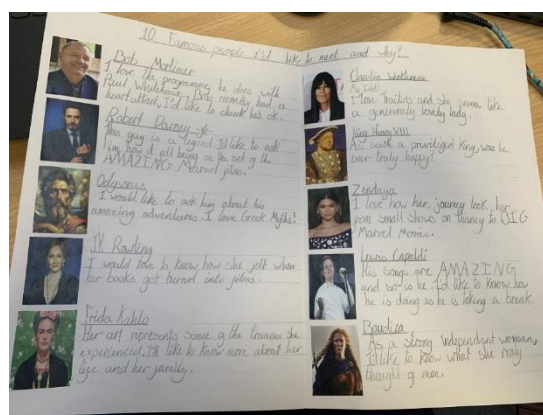 10 Famous people I'd like to meet and why?
Bob Mortimer
I love the programme he does with
Paul Whitehouse. Bob recently had a
heart attack, I'd like to check he's ok.
Robert Downey Jr.
This guy is a legend. I'd like to ask
him how it felt being on the set of the
AMAZING Marvel films.
Odysseus
I would like to ask him about his
amazing adventures. I love Greek Myths!
JK Rowling
I would love to know how she felt when
her books got turned into films.
Frida Kahlo
Her art represents some of the trauma she
experienced. I'd like to know more about her
life and her family.
Claudia Winkleman
My Idol!
I love Traitors and she seems like
a genuinely lovely lady.
King Henry VIII
As such a priviliged King, was he
ever truly happy?
Zendaya
I love how her journey took her
from small shows on Disney to BIG
Marvel Movies.
Lewis Capaldi
His songs are AMAZING
and so is he. I'd like to know how
he is doing as he is taking a break.
Boudica
As a strong independent woman,
I'd like to know what she really
thought of men.